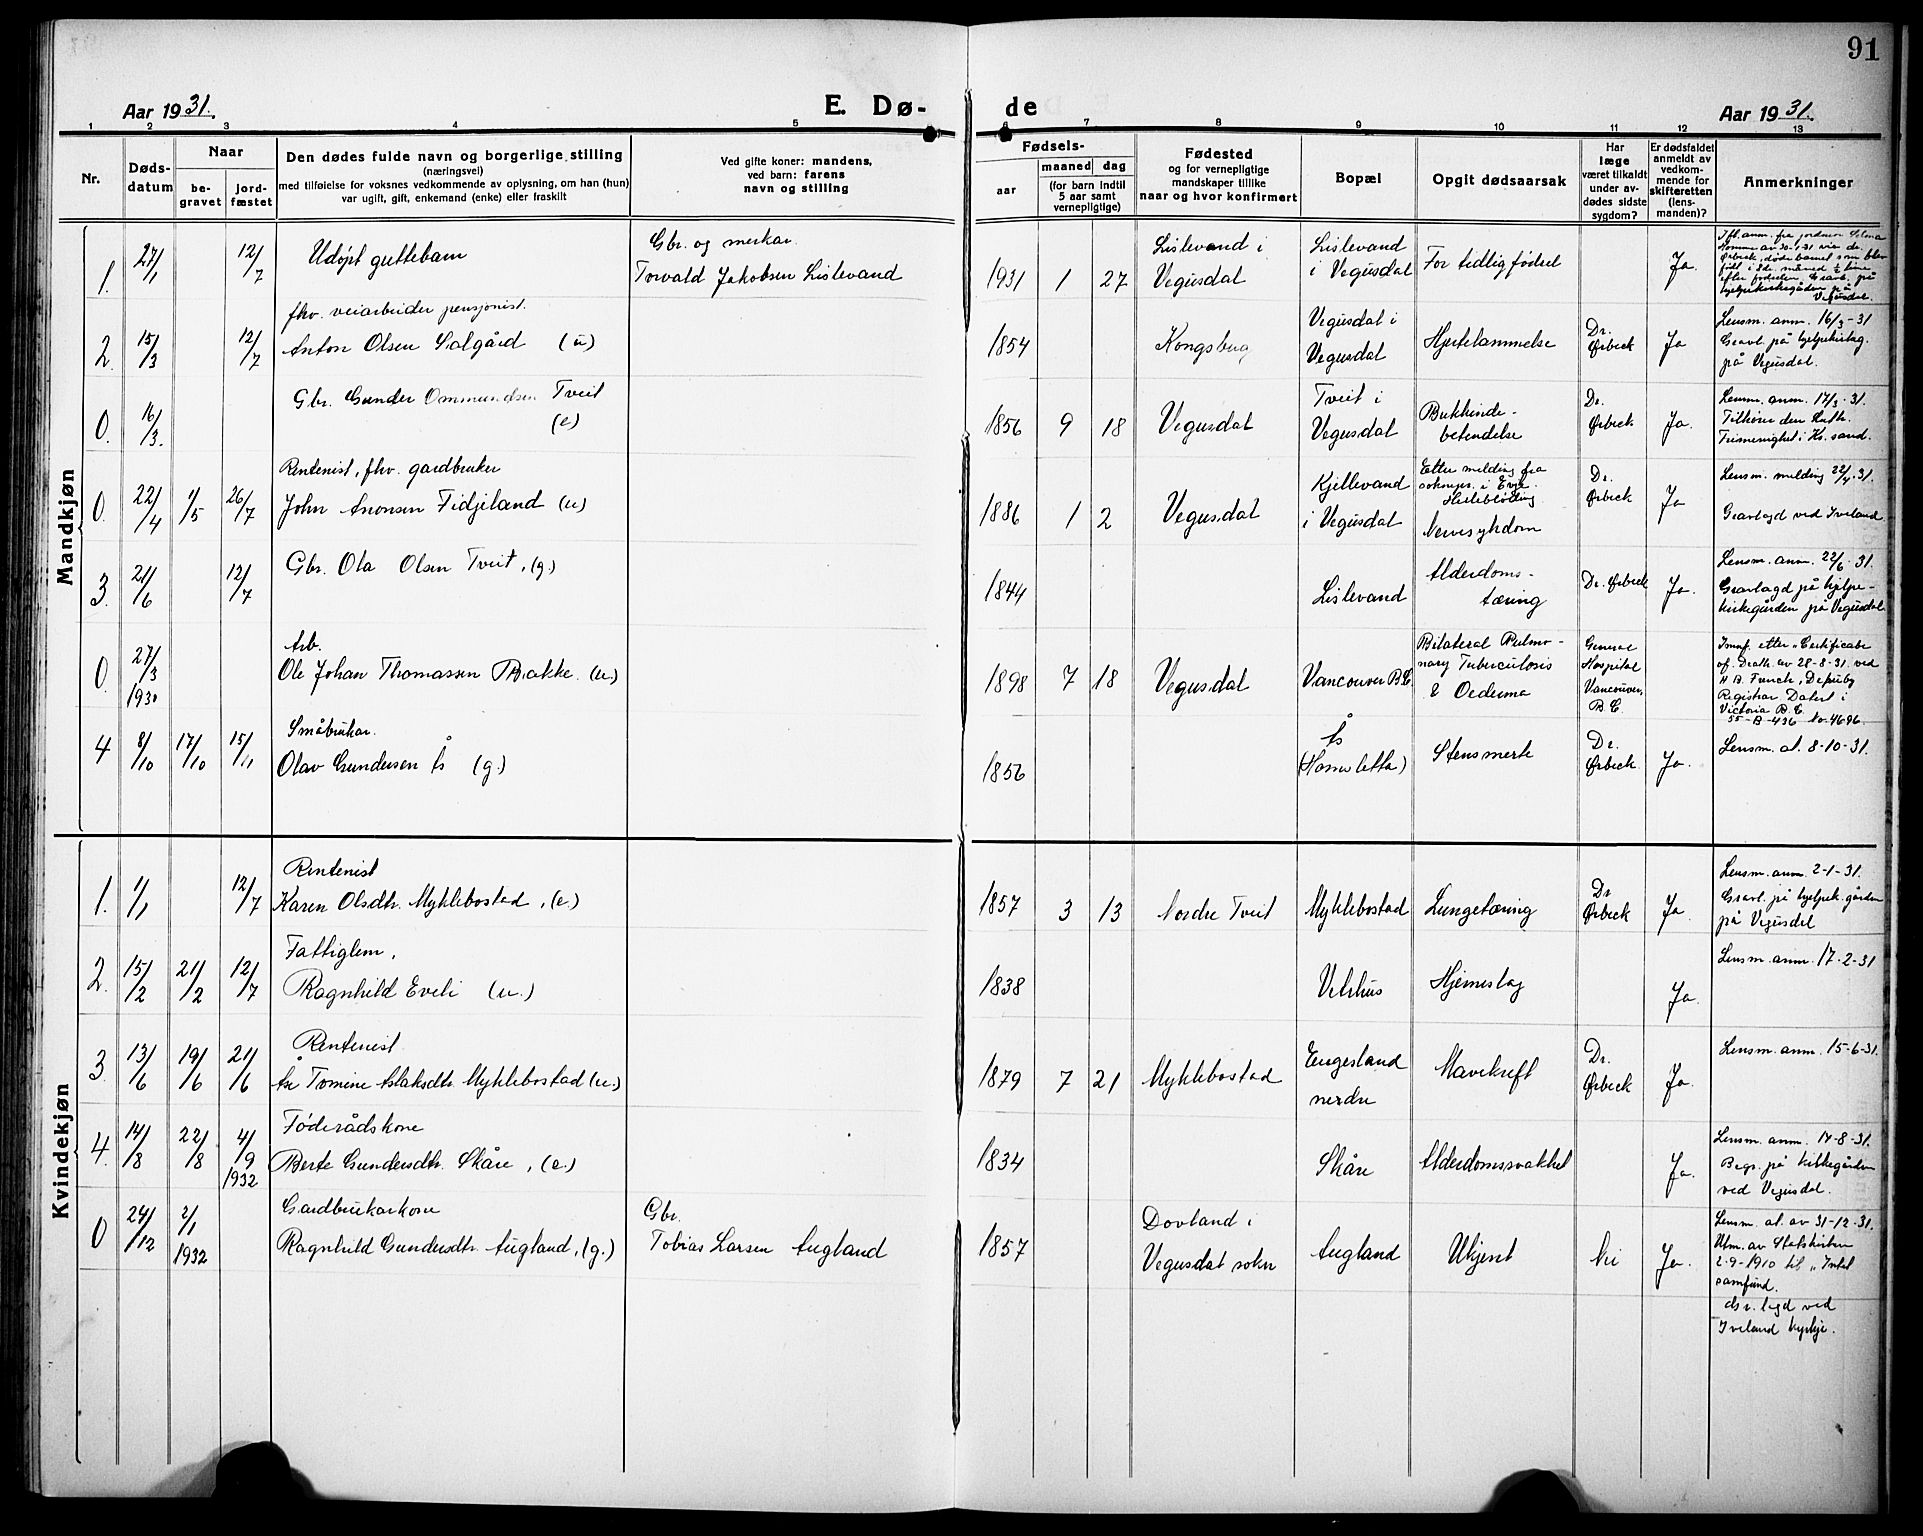 91
Aar 1931.
E. Dø-
de
Aar 1931.
1 2 3 4 5 6 7 8 9 10 11 12 13
Nr.
Døds-
datum
Naar
be-
gravet
jord-
fæstet
Den dødes fulde navn og borgerlige stilling
(næringsvei)
med tilføielse for voksnes vedkommende av oplysning, om han (hun)
var ugift, gift, enkemand (enke) eller fraskilt
Ved gifte koner: mandens,
ved barn: farens
navn og stilling
Fødsels-
aar
maaned
dag
(for barn indtil
5 aar samt
vernepligtige)
Fødested
og for vernepligtige
mandskaper tillike
naar og hvor konfirmert
Bopæl
Opgit dødsaarsak
Har
læge
været tilkaldt
under av-
dødes sidste
sygdom?
Er dødsfaldet
anmeldt av
vedkom-
mende for
skifteretten
(lens-
manden)?
Anmerkninger
Mandkjøn
1. 27/1 12/7 Udøpt guttebarn
Gbr. og merkar.
Torvald Jakobsen Lislevand
1931 1 27
Lislevand i
Vegusdal
Lislevand
i Vegusdal
For tidlig fødsel
Ja.
Vegusdal.
2. 15/3 12/7
fhv. veiarbeider pensjonist.
Anton Olsen Solgård (u)
1854 Kongsberg
Vegusdal i
Vegusdal
Hjertelammelse
Dr.
Ørbeck
Ja
Lensm. anm. 16/3-31
på Vegusdal.
0. 16/3.
Gbr. Gunder Ommundsen Tveit
(e)
1856 9 18 Vegusdal
Tveit i
Vegusdal
Bukhinde-
betendelse
Dr.
Ørbeck
Ja.
Lensm. anm. 17/3-31.
Tilhører den Luth.
Frimenighet i Kr.sand.
0. 22/4 1/5 26/7
Rentenist, fhv. gardbruker
John Aronsen Fidjeland (u)
1886 1 2 Vegusdal
Kjellevand
i Vegusdal
Etter melding fra
Nervesykdom
Dr.
Ørbeck
Ja
Lensm. melding 22/4.31.
Gravlagd ved Iveland
3. 21/6 12/7
Gbr. Ola Olsen Tveit, (g.)
1844
Lislevand
Alderdoms-
tæring
Dr. Ørbeck
Ja.
Lensm. anm. 22/6-31.
Gravlagd på hjelpe-
kirkegården på Vegusdal
0. 27/3 1930
Arb.
Ole Johan Thomassen Bakke. (u.)
1898 7 18 Vegusdal
Vancouver B.C.
Bilateral Pulmo-
nary Tuberculosis
& Oedema
General
Hospital
Vancouver,
B.C.
Innf. etter "Certificate
of Death av 28-8-31 ved
H B. French, Deputy
Registrar Datert i
Victoria B.C.
55-B-436 No.4696.
4 8/10 17/10 15/11
Småbrukar.
Olav Gundersen Ås (g.)
1856
Ås
Stensmerte
Dr.
Ørbeck
Ja.
Lensm. at. 8-10-31.
Kvindekjøn
1. 1/1 12/7
Rentenist
Karen Olsdtr. Myklebostad, (e.)
1857 3 13 Nordre Tveit
Myklebostad
Lungetæring
Dr
Ørbeck
Ja.
Lensm. anm. 2-1-31.
Gravl. på hjelpek.gården
på Vegusdal
2. 15/2 21/2 12/7
Fattiglem,
Ragnhild Eveli (u.)
1838
Vehus
Hjerneslag
Ja.
Lensm. anm. 17-2-31
3. 13/6 19/6 21/6
Rentenist
Åse Tomine Aslaksdtr. Myklebostad (u.)
1879 7 21 Myklebostad
Engesland
nerdre
Mavekreft
Dr.
Ørbeck
Ja.
Lensm. anm. 15-6-31.
4. 14/8 22/8 4/9 1932
Føderådskone
Berte Gundersdtr. Skåre, (e.)
1834
Skåre
Alderdomssvakhet
Ja.
Lensm. anm. 17-8-31.
Begr. på kirkegården
ved Vegusdal.
0 24/12 2/1 1932
Gardbrukarkone
Ragnhild Gundersdtr. Augland, (g.)
Gbr.
Tobias Larsen Augland
1857
Dovland i
Vegusdal sokn
Augland
Ukjent
Nei
Ja.
Lensm. at. av 31-12-31.
Utm. av Statskirken
2-9-1910 til
samfund.
ds v. legd ved
Iveland kyrkje.